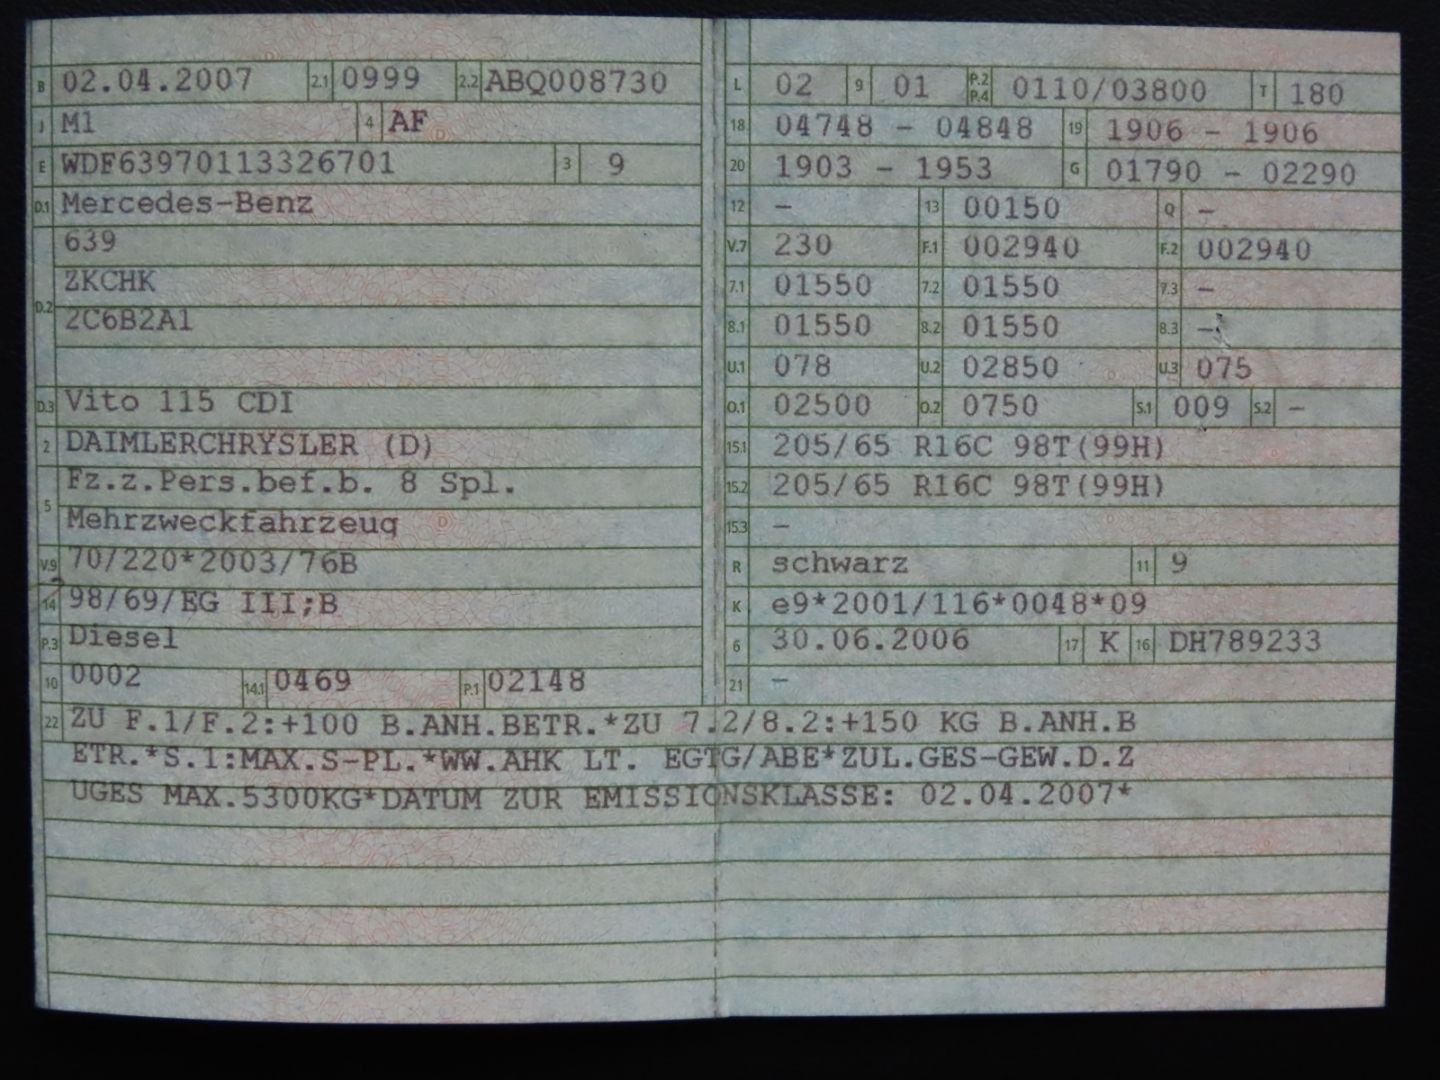 B 02.04.2007 2.1 0999 2.2 ABQ008730
J M1 4 AF
E WDF63970113326701 3 9
D.1 Mercedes-Benz
639
D.2 ZKCHK
2C6B2A1
D.3 Vito 115 CDI
2 DAIMLERCHRYSLER (D)
5 Fz.z.Pers.bef.b. 8 Spl.
Mehrzweckfahrzeug
V.9 70/220*2003/76B
14 98/69/EG III;B
P.3 Diesel
10 0002 14.1 0469 P.1 02148
L 02 9 01 P.2 P.4 0110/03800 T 180
18 04748 - 04848 19 1906 - 1906
20 1903 - 1953 G 01790 - 02290
12 - 13 00150 Q -
V.7 230 F.1 002940 F.2 002940
7.1 01550 7.2 01550 7.3 -
8.1 01550 8.2 01550 8.3 -
U.1 078 U.2 02850 U.3 075
O.1 02500 O.2 0750 S.1 009 S.2 -
15.1 205/65 R16C 98T(99H)
15.2 205/65 R16C 98T(99H)
15.3 -
R schwarz 11 9
K e9*2001/116*0048*09
6 30.06.2006 17 K 16 DH789233
21 -
22 ZU F.1/F.2:+100 B.ANH.BETR.*ZU 7.2/8.2:+150 KG B.ANH.B
ETR.*S.1:MAX.S-PL.*WW.AHK LT. EGTG/ABE*ZUL.GES-GEW.D.Z
UGES MAX.5300KG*DATUM ZUR EMISSIONSKLASSE: 02.04.2007*